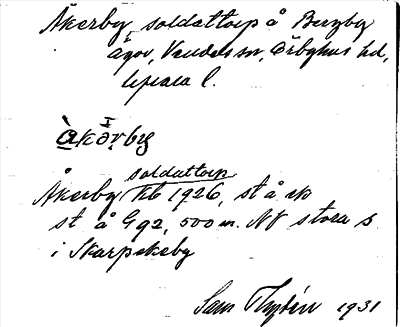 Åkerby, soldattorp å Bergby
ägor, Vendels sn, Örbyhus hd,
Upsala l.
àkərby
soldattorp
Åkerby kb 1926, st å sk
st å G 92, 500 m. NV stora s
i Skarpekeby
Sam Thylén 1931